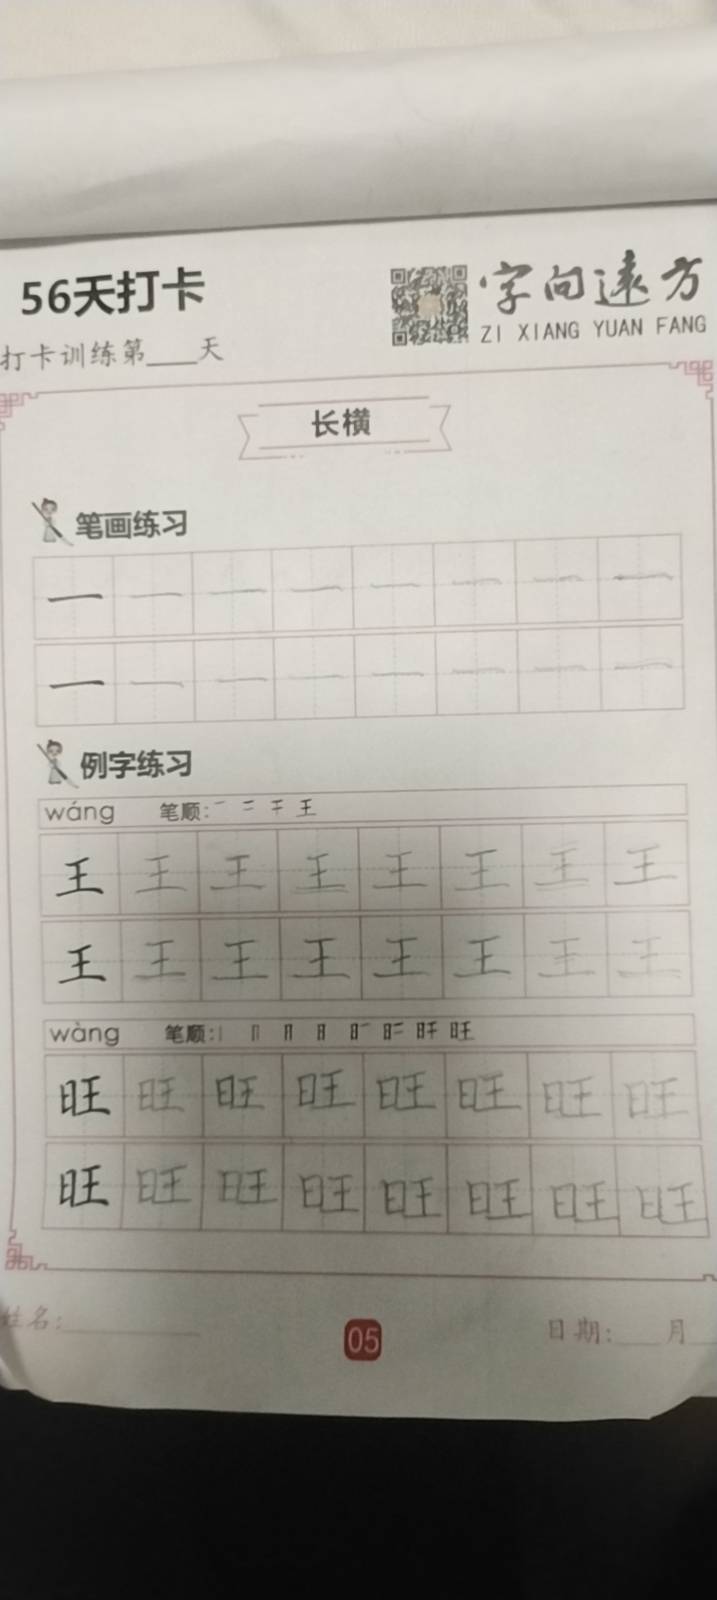 56天打卡
字向远方
ZI XIANG YUAN FANG
打卡训练第___天
长横
笔画练习
一 一 一 一 一 一 一 一
一 一 一 一 一 一 一 一
例字练习
wáng 笔顺: 一 二 干 王
王 王 王 王 王 王 王 王
王 王 王 王 王 王 王 王
wàng 笔顺: 丨 冂 日 日 旺
旺 旺 旺 旺 旺 旺 旺 旺
旺 旺 旺 旺 旺 旺 旺 旺
姓名:
05
日期: 月